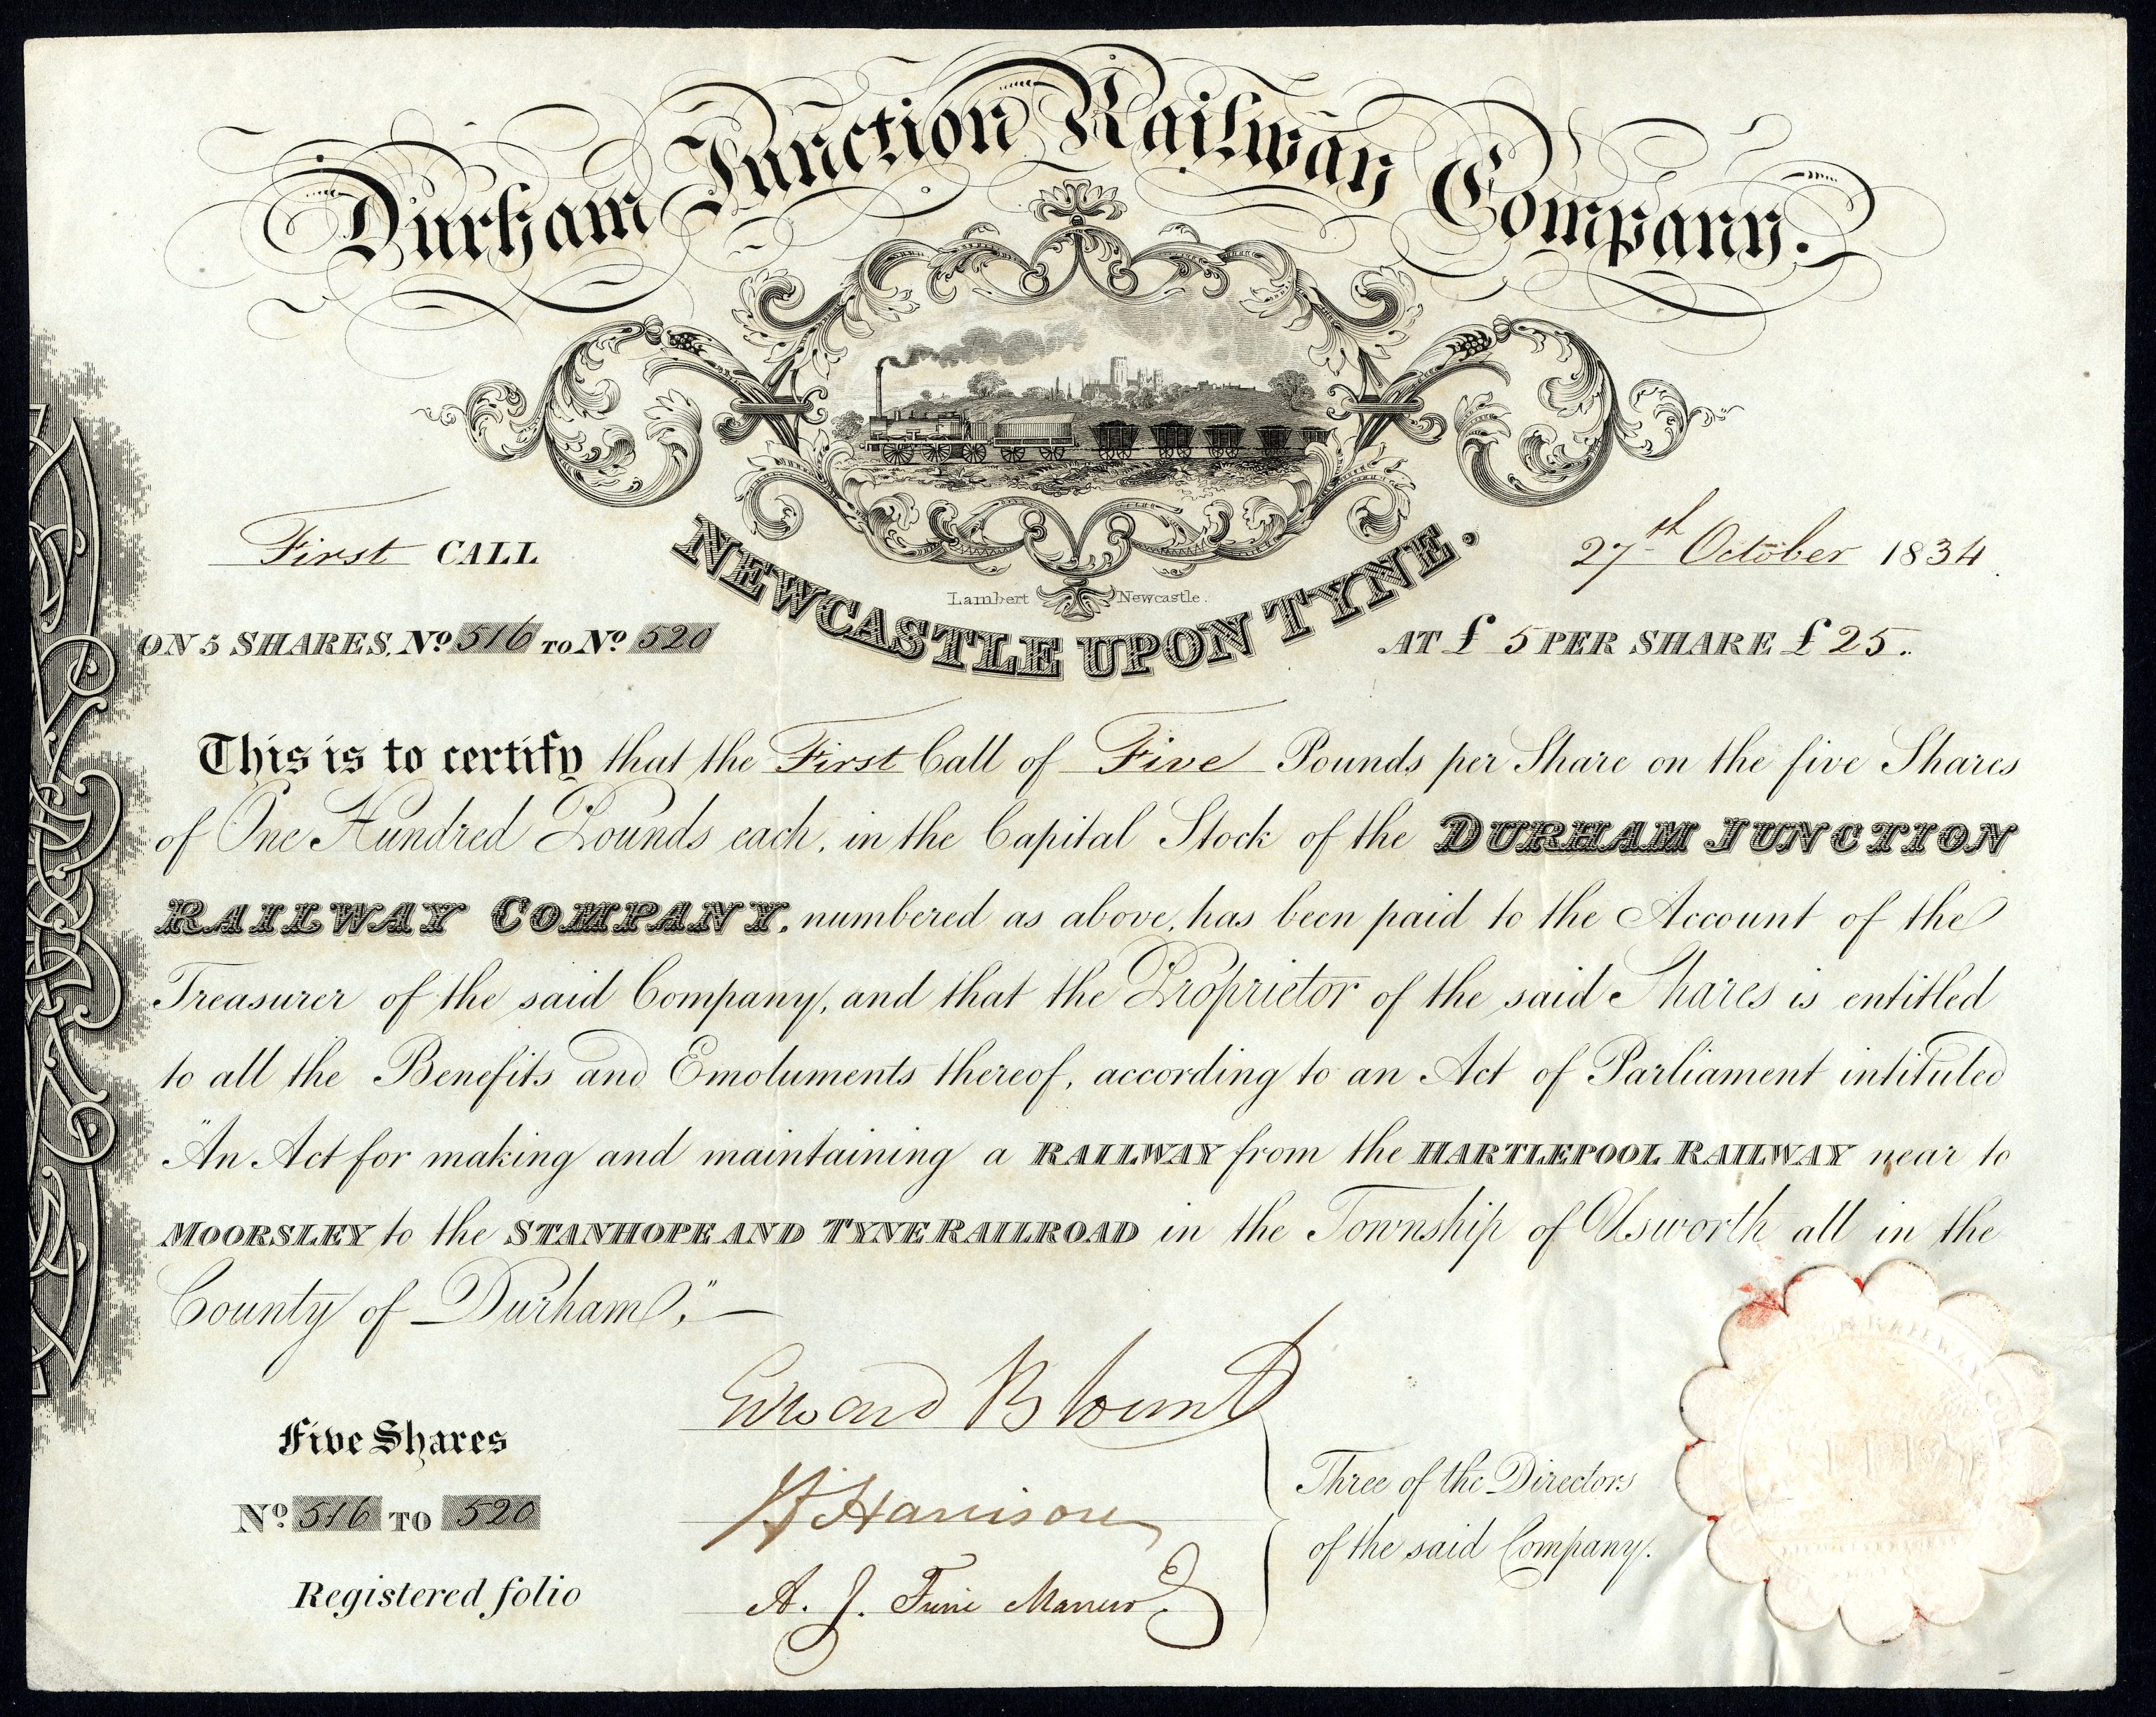 Durham Junction Railway Company.
Lambert Newcastle.
NEWCASTLE UPON TYNE.
First CALL
27th October 1834
ON 5 SHARES, No. 516 TO No. 520
AT £ 5 PER SHARE £ 25.
This is to certify that the First Call of Five Pounds per Share on the five Shares
of One Hundred Pounds each, in the Capital Stock of the DURHAM JUNCTION
RAILWAY COMPANY, numbered as above, has been paid to the Account of the
Treasurer of the said Company, and that the Proprietor of the said Shares is entitled
to all the Benefits and Emoluments thereof, according to an Act of Parliament intituled
"An Act for making and maintaining a RAILWAY from the HARTLEPOOL RAILWAY near to
MOORSLEY to the STANHOPE AND TYNE RAILROAD in the Township of Usworth all in the
County of Durham."
Edward Blount
Five Shares
No. 516 TO 520
Registered folio
Harrison
A. J.
Three of the Directors
of the said Company.
RAILWAY